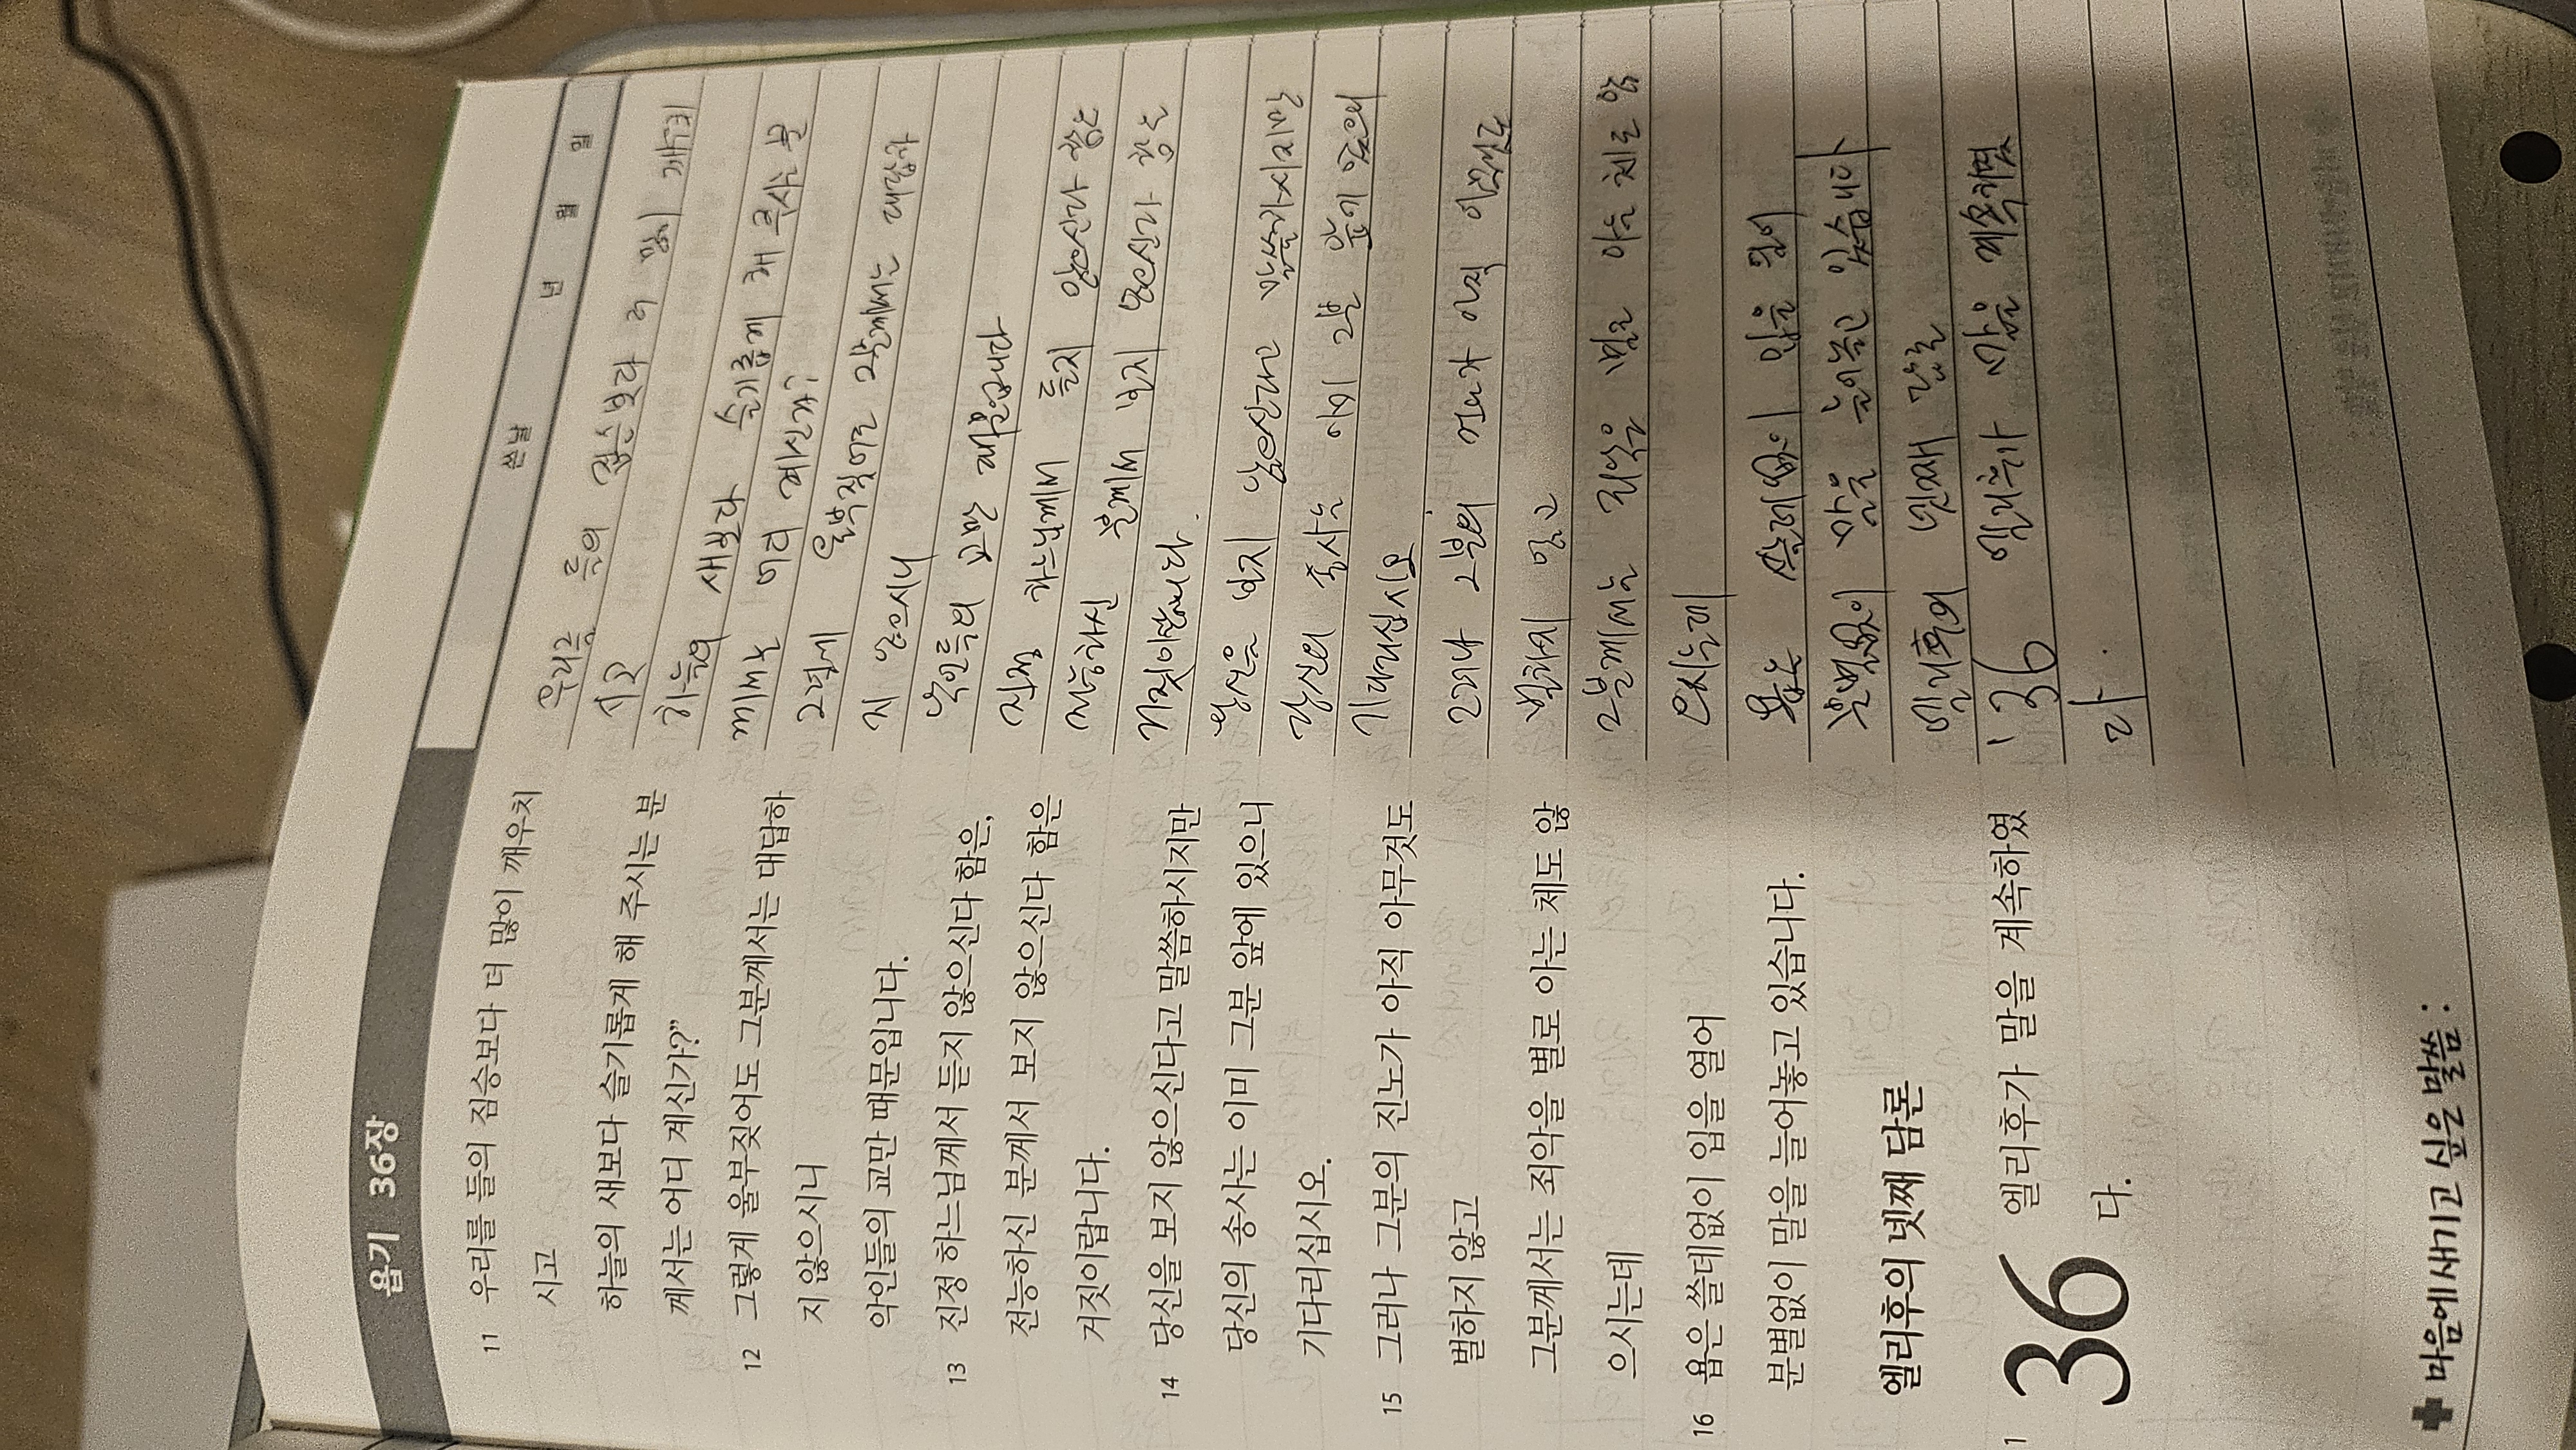 욥기 36장
11 우리를 들의 짐승보다 더 많이 깨우치
시고
하늘의 새보다 슬기롭게 해 주시는 분
께서는 어디 계신가?”
12 그렇게 울부짖어도 그분께서는 대답하
지 않으시니
악인들의 교만 때문입니다.
13 진정 하느님께서 듣지 않으신다 함은,
전능하신 분께서 보지 않으신다 함은
거짓이랍니다.
14 당신을 보지 않으신다고 말씀하시지만
당신의 송사는 이미 그분 앞에 있으니
기다리십시오.
15 그러나 그분의 진노가 아직 아무것도
벌하지 않고
그분께서는 죄악을 별로 아는 체도 않
으시는데
16 욥은 쓸데없이 입을 열어
분별없이 말을 늘어놓고 있습니다.
엘리후의 넷째 담론
36
1 엘리후가 말을 계속하였
다.
✚ 마음에 새기고 싶은 말씀 :
쓴날 년 월 일
우리를 들의 짐승보다 더 많이 깨우치
시고
하늘의 새보다 슬기롭게 해 주시는 분
께서는 어디 계신가?
그렇게 울부짖어도 그분께서는 대답하
지 않으시니
악인들의 교만 때문입니다
진정 하느님께서 듣지 않으신다 함은
전능하신 분께서 보지 않으신다 함은
거짓이랍니다.
당신을 보지 않으신다고 말씀하시지만
당신의 송사는 이미 그분 앞에 있으니
기다리십시오
그러나 그분의 진노가 아직
벌하지 않고
그분께서는 죄악을 별로 아는 체도 않
으시는데
욥은 쓸데없이 입을 열어
분별없이 말을 늘어놓고 있습니다
엘리후의 넷째 담론
'36 엘리후가 말을 계속하였
다.